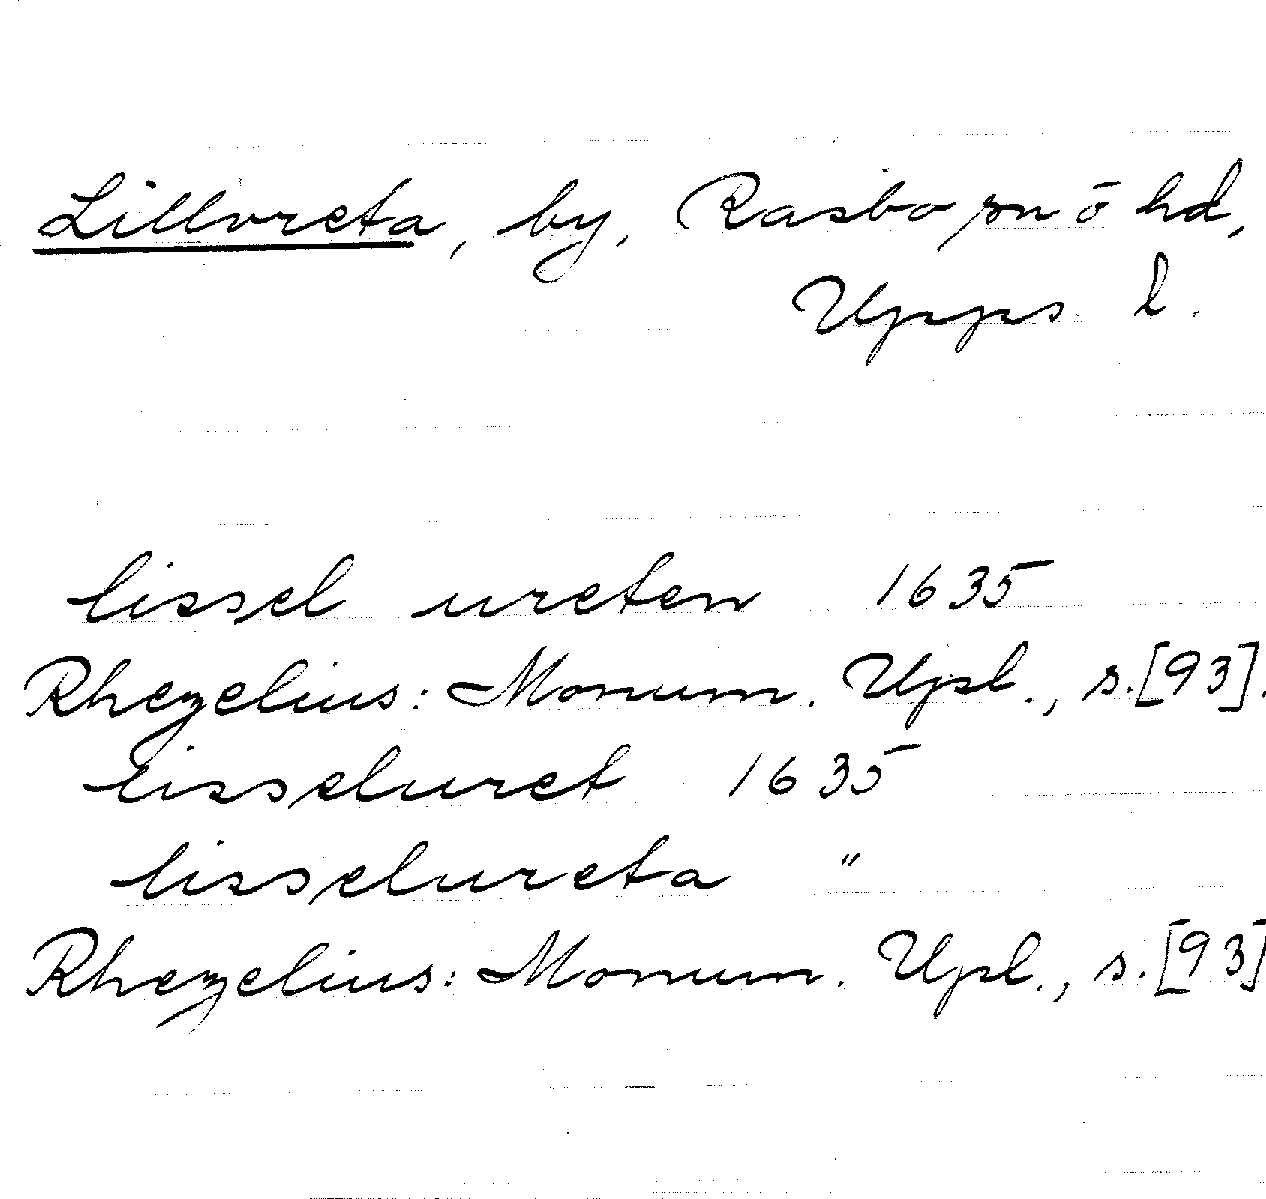 Lillvreta, by, Rasbo sn o hd,
Upps. l.
lissel ureten 1635
Rhezelius: Monum. Upl., s. [93].
lisseluret 1635
lisselureta "
Rhezelius: Monum. Upl., s. [93]